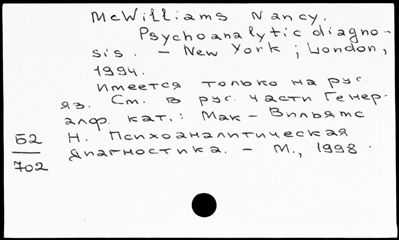 McWilliams Nancy.
Psychoanalytic diagno-
sis. - New York; London,
1994.
Имеется только на рус.
яз. См. в рус. части Генер.
алф. кат.: Мак-Вильямс
Н. Психоаналитическая
диагностика. - М., 1998.
Б2
702